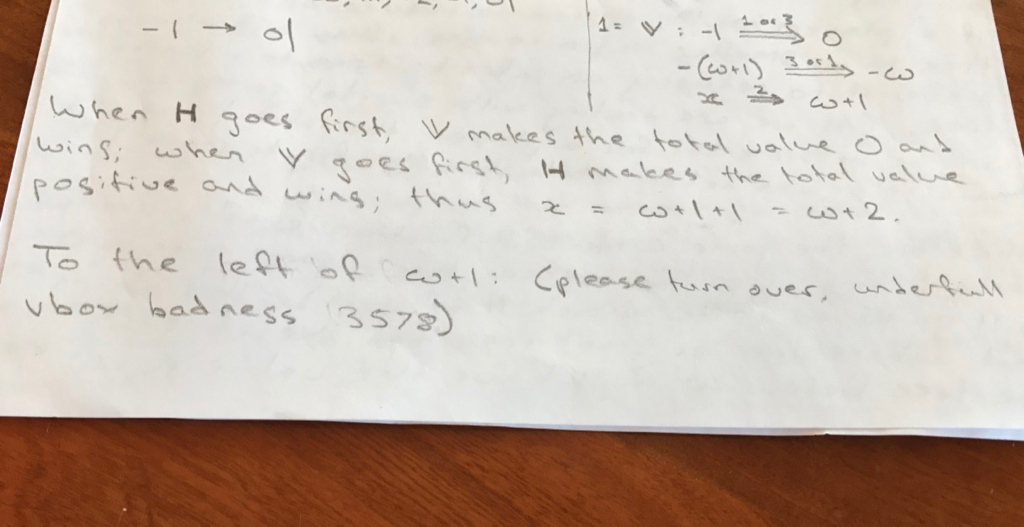 -1 → 0|
1= V : -1 1 or 3 ⟹ 0
-(ω+1) 3 or 1 ⟹ -ω
x 2 ⟹ ω+1
When H goes first, V makes the total value 0 and
wins; when V goes first, H makes the total value
positive and wins; thus x = ω+1+1 = ω+2.
To the left of ω+1: (please turn over, underfull
vbox badness 3578)